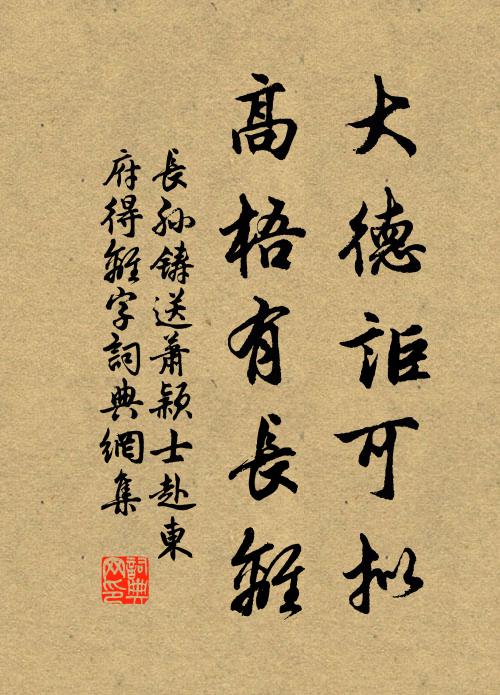 大德詎可擬
高梧有長離
長孫鑄送蕭穎士赴東
府得離字詞典網集
詞典
网印